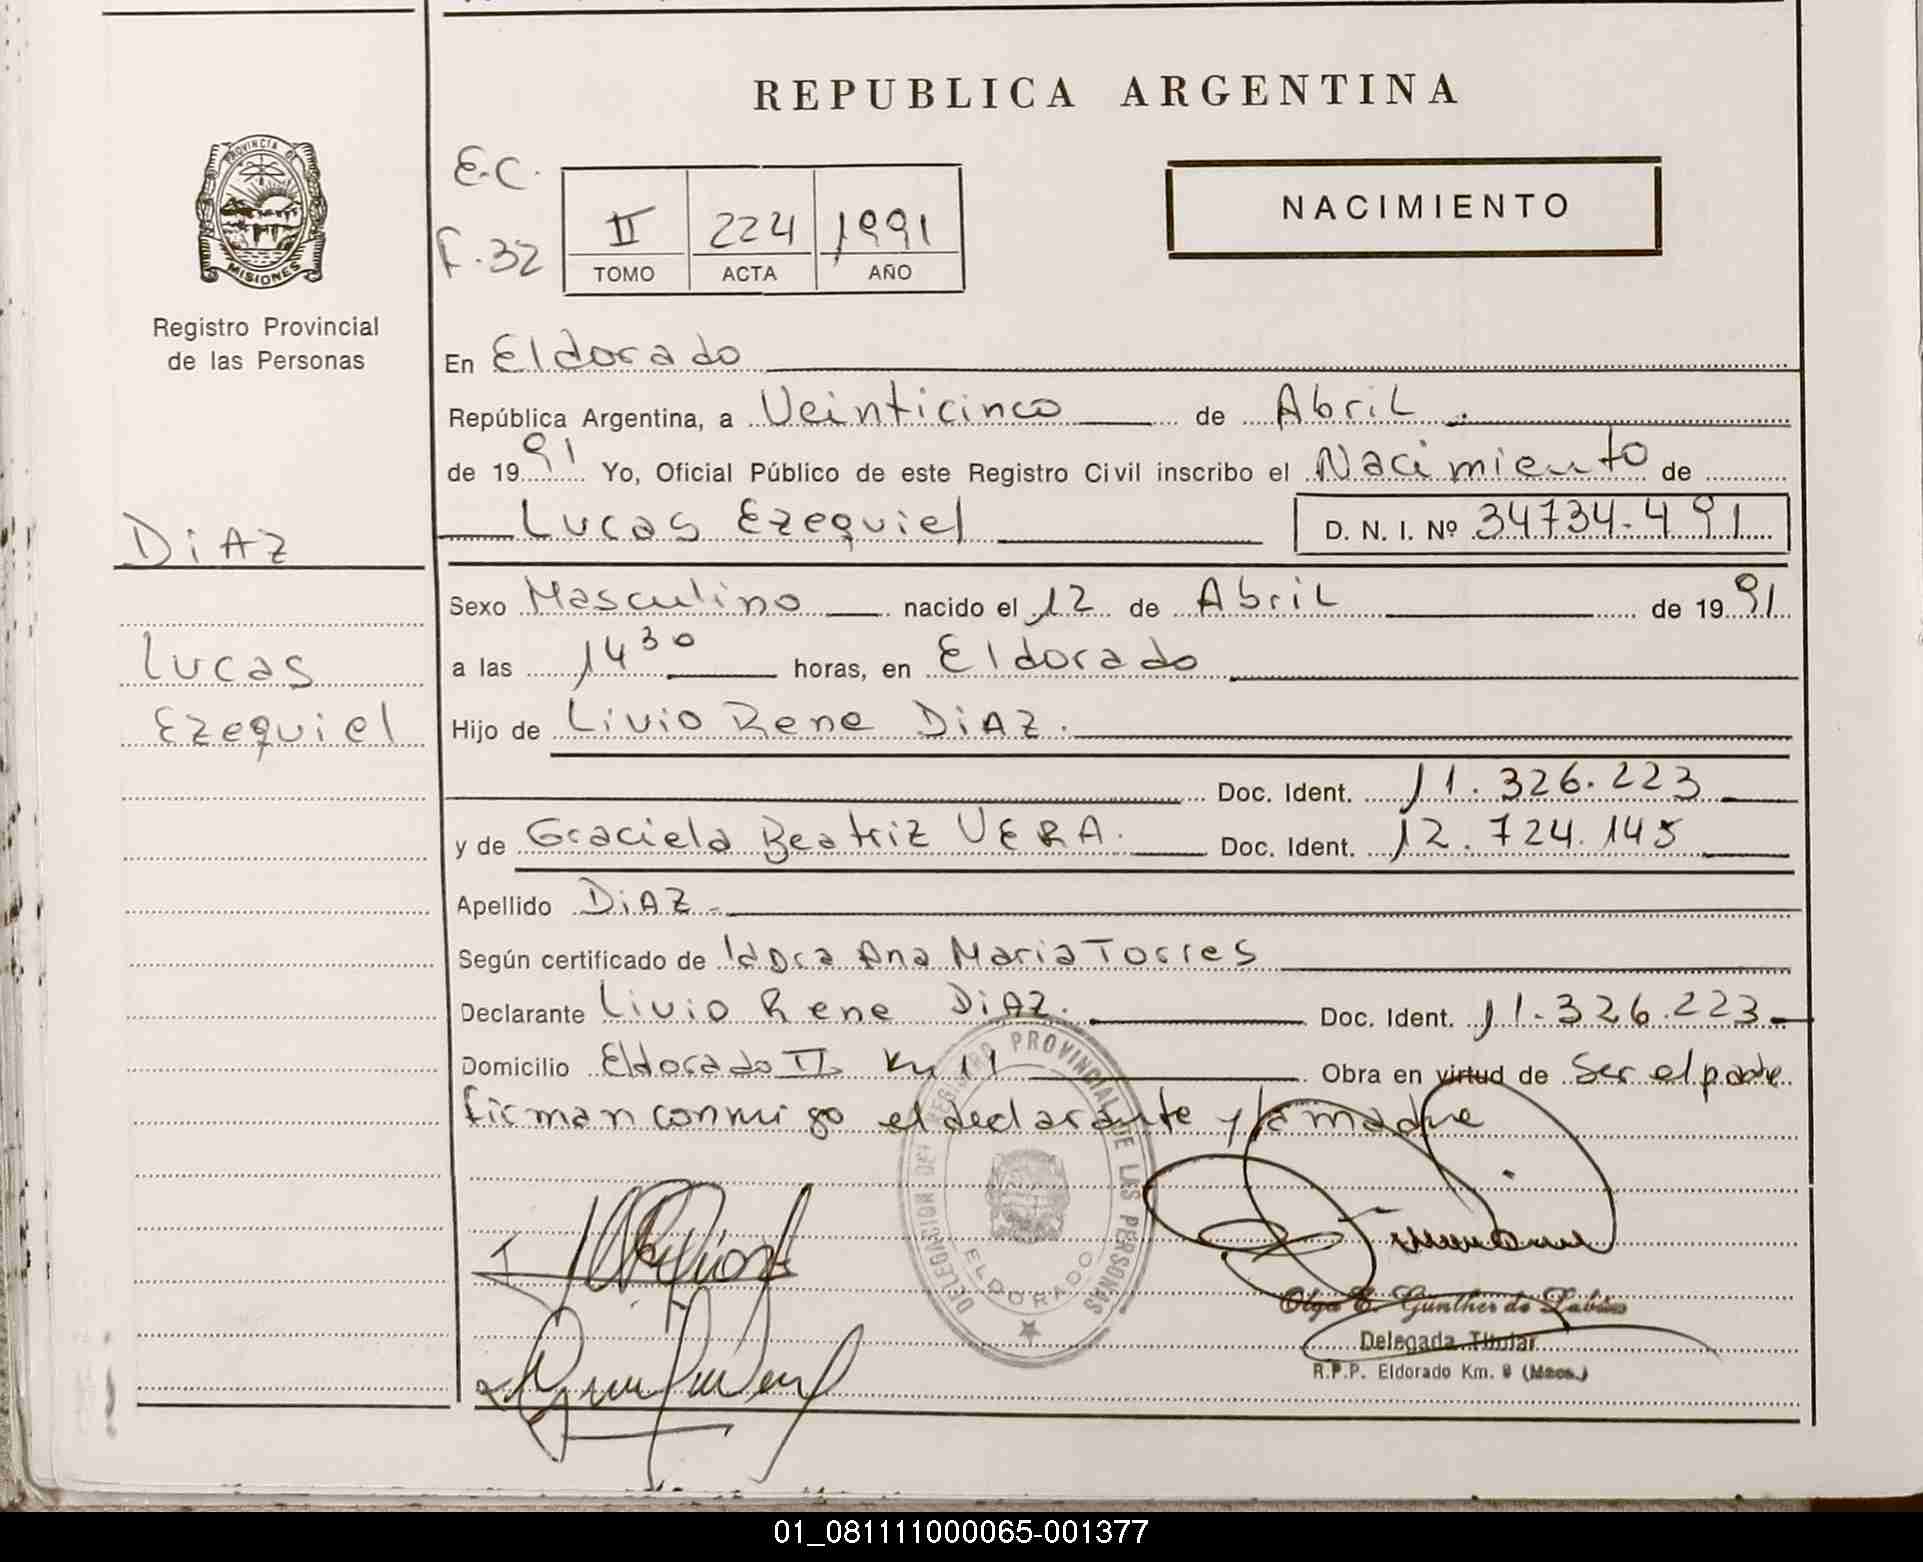 REPUBLICA ARGENTINA
PROVINCIA DE
MISIONES
Registro Provincial
de las Personas
E.C.
F.32
II 224 1991
TOMO ACTA AÑO
NACIMIENTO
En Eldorado
República Argentina, a Veinticinco de Abril.
de 1991 Yo, Oficial Público de este Registro Civil inscribo el Nacimiento de
Lucas Ezequiel D. N. I. Nº 34734.491
DiAZ
Lucas
Ezequiel
Sexo Masculino nacido el 12 de Abril de 1991
a las 14 30 horas, en Eldorado
Hijo de Livio Rene DiAZ.
Doc. Ident. 11.326.223
y de Graciela Beatriz VERA. Doc. Ident. 12.724.145
Apellido DiAZ-
Según certificado de Ana Maria Torres
Declarante Livio Rene DiAZ. Doc. Ident. 11.326.223
Domicilio Eldorado II Km 11 Obra en virtud de Ser el padre
firman conmigo el declarante y la madre
DELEGACION DEL REGISTRO PROVINCIAL DE LAS PERSONAS
ELDORADO
Olga E. Günther de
Delegada Titular
R.P.P. Eldorado Km. 9 (Mnes.)
01_081111000065-001377